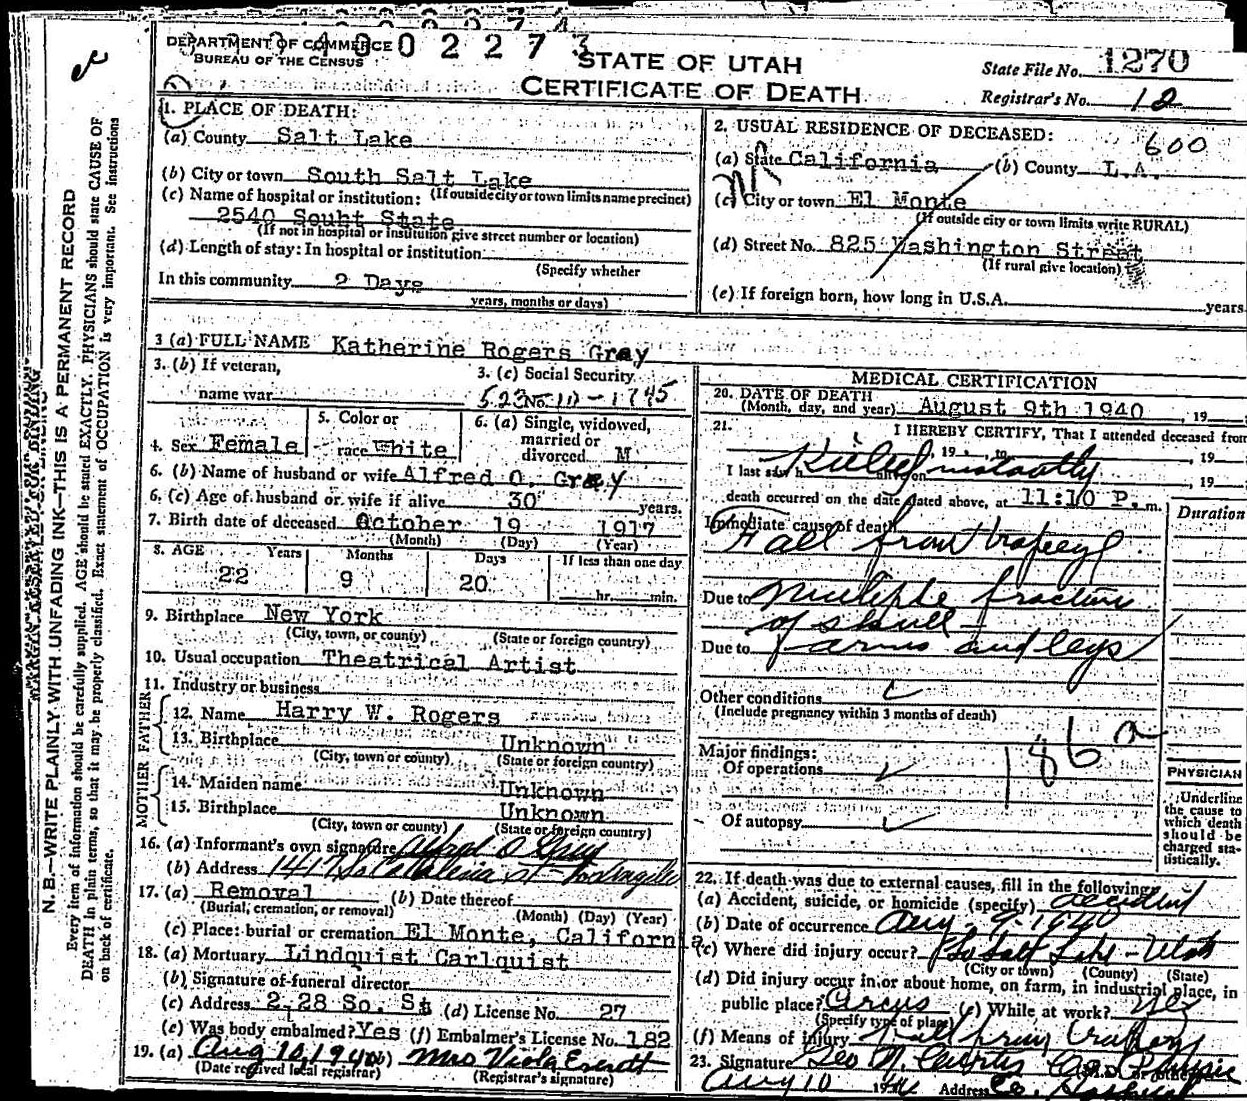 DEPARTMENT OF COMMERCE
BUREAU OF THE CENSUS
40 02273
STATE OF UTAH
CERTIFICATE OF DEATH
State File No. 1270
Registrar's No. 12
1. PLACE OF DEATH:
(a) County Salt Lake
(b) City or town South Salt Lake
(c) Name of hospital or institution: (If outside city or town limits name precinct)
2540 Souht State
(If not in hospital or insitution give street number or location)
(d) Length of stay: In hospital or institution
(Specify whether
In this community 2 Days
years, months or days)
2. USUAL RESIDENCE OF DECEASED:
600
(a) State California (b) County L.A.
(c) City or town El Monte
(If outside city or town limits write RURAL)
(d) Street No. 825 Washington Street
(If rural give location)
(e) If foreign born, how long in U.S.A. years.
3 (a) FULL NAME Katherine Rogers Gray
3. (b) If veteran,
name war
3. (c) Social Security
No. 523-10-1745
4. Sex Female
5. Color or
race White
6. (a) Single, widowed,
married or
divorced M
6. (b) Name of husband or wife Alfred O. Gray
6. (c) Age of husband or wife if alive 30 years.
7. Birth date of deceased October 19 1917
(Month) (Day) (Year)
8. AGE Years Months Days If less than one day
22 9 20 hr. min.
9. Birthplace New York
(City, town, or county) (State or foreign country)
10. Usual occupation Theatrical Artist
11. Industry or business
FATHER
12. Name Harry W. Rogers
13. Birthplace Unknown
(City, town or county) (State or foreign country)
MOTHER
14. Maiden name Unknown
15. Birthplace Unknown
(City, town or county) (State or foreign country)
16. (a) Informant's own signature Alfred O Gray
(b) Address 1417 So Catalina St - Los Angeles
17. (a) Removal (b) Date thereof
(Burial, cremation, or removal) (Month) (Day) (Year)
(c) Place: burial or cremation El Monte, California
18. (a) Mortuary Lindquist Carlquist
(b) Signature of funeral director
(c) Address 2-28 So. St (d) License No. 27
(e) Was body embalmed? Yes (f) Embalmer's License No. 182
19. (a) Aug 10, 1940 (b) Mrs Viola Everdt
(Date received local registrar) (Registrar's signature)
MEDICAL CERTIFICATION
20. DATE OF DEATH
(Month, day, and year) August 9th 1940, 19
21. I HEREBY CERTIFY, That I attended deceased from
, 19 , to , 19
I last saw h alive on , 19
Killed instantly
death occurred on the date stated above, at 11:10 P. m.
Duration
Immediate cause of death
Fall from trapeze
Due to Multiple fracture
of skull -
Due to arms and legs
Other conditions
(Include pregnancy within 3 months of death)
186 a
Major findings:
Of operations
Of autopsy
PHYSICIAN
Underline
the cause to
which death
should be
charged sta-
tistically.
22. If death was due to external causes, fill in the following:
(a) Accident, suicide, or homicide (specify) accident
(b) Date of occurrence Aug. 9, 1940
(c) Where did injury occur? So Salt Lake - Utah
(City or town) (County) (State)
(d) Did injury occur in or about home, on farm, in industrial place, in
public place? Circus (e) While at work? yes
(Specify type of place)
(f) Means of injury Fall from trapeze
23. Signature Geo N. Curtis Co. Physic
Aug 10 1940 Address Co. Hospital
N. B.—WRITE PLAINLY WITH UNFADING INK—THIS IS A PERMANENT RECORD
Every item of information should be carefully supplied. AGE should be stated EXACTLY. PHYSICIANS should state CAUSE OF
DEATH in plain terms, so that it may be properly classified. Exact statement of OCCUPATION is very important. See instructions
on back of certificate.